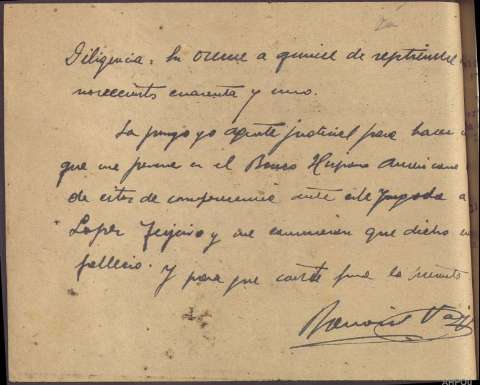 Diligencia: En Orense a quince de septiembre
novecientos cuarenta y uno.
La pongo yo agente judicial para hacer
que me persone en el Banco Hispano Americano
de citar de comparecencia ante este Juzgado a
Lopez Feijoo y me comunican que dicho
fallecio. Y para que conste firmo la presente